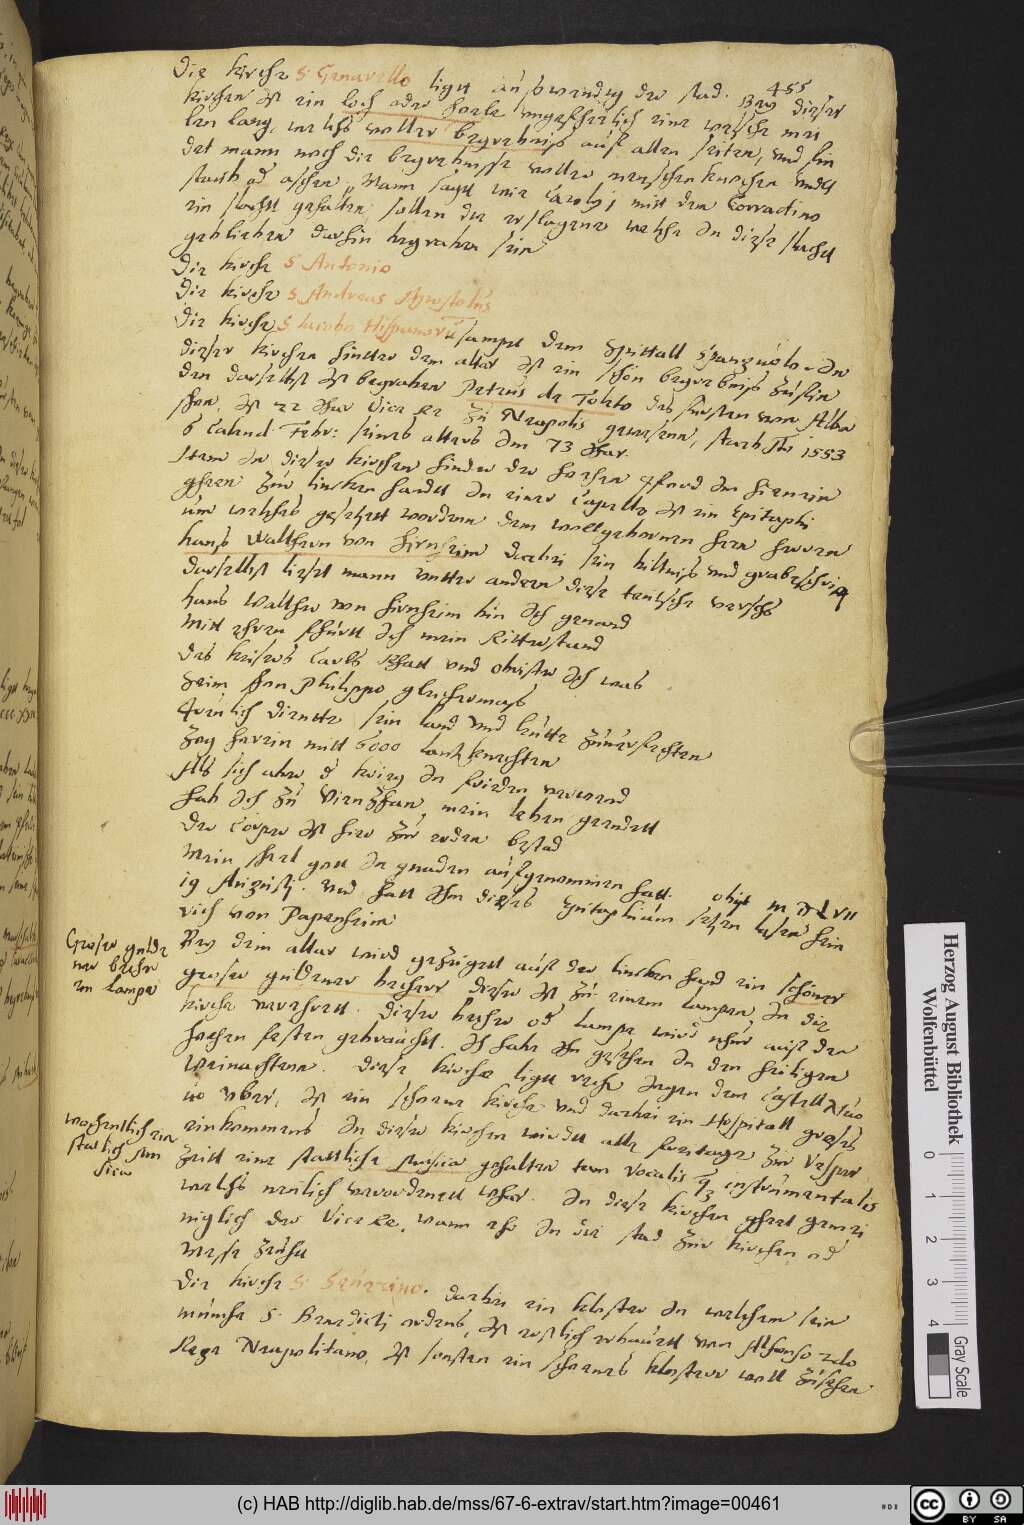 455
Die kirche S. Genarello ligtt ausswendig der stad. Bey dieser
kirchen ist ein loch oder hoele ungefehrlich eine welsche mei
len lang, welchs voller begrebniss auf allen seiten, und fin
det mann noch die begrebnisse voller menschen knochen undt
staub od aschen. Mann sagtt wie Carolus j mitt dem Corradino
ein slachtt gehalten, sollen die erslagene welche in dieser slachtt
geblieben darhin begraben sein
Die kirche S. Antonio
Die kirche S. Andreas Apostolus
Die kirche S. Iacobo Hispanorū sampt dem Spittall Spagnuolo. In
dieser kirchen hintter dem altar ist ein schön begrebniss zusehen
den daselbst ist begraben Petrus de Toleto des fursten von Alba
sohn, ist 22 Jhar Vice Re zu Neapolis gewesenn, starb Ao 1553
6 Caland Febr: seines alters im 73 Jhar.
Item in dieser kirchen hinder der pford im hienein
gehen zur lincken handtt in einer Capellen ist ein Epitaphi
um welchs gesetzett worden dem wollgebornen hern herren
Hans Walthern von Hirnheim dabei sein biltniss und grabschrift
daselbst lieset mann untter andern diese teutsche verschs
Hans Walther von Hirnheim bin ich genand
Mitt ehren fhurtt ich mein Ritterstand
Des keisers Carls Rhatt und obrister ich was
Seim shon Philippo gleichermass
Treulich dientte sein land und leutte zuuerfechten
Zog herein mitt 6000 lantzknechten
Als sich aber d krieg in frieden verwend
Hab ich zu Vienzhan mein leben geendett
Der Corper ist hier zur erden bestad
Mein sheel gott in gnaden auffgenommen hatt. obijt MDLVII
19 Augusti. Und hatt ihm dieses Epitaphium setzen lassen Hein
rich von Papenheim
Bey dem altar wird gezeigett auf der lincken hand ein schöner
grosser guldener becher, dieser ist zu einem lampen in die
kirche verehrett. Dieser becher od lampe wird nhur auf den
hochen festen gebraucht. Ich habe ihn gesehen in den heiligen
Weinachtenn. Diese kirche ligtt recht iegen dem Castell Nuo
uo uber, ist ein schoene kirche und dabei ein Hospitall grosses
einkommens. In dieser kirchen wirdtt alle sontage zur Vesper
zeitt eine stattliche musica gehalten tam vocalis q instrumentalis
welchs neulich verordenett wher. In diese kirchen phlegt gemei
niglich der Vice Re, wann ehr in die stad zur kirchen od
messe zeuhtt
Die kirche S. Seuerino. darbei ein kloster in welchem sein
münche S. Benedicti ordens, ist erstlich erbauett von Alfonso 2do
Rege Neapolitano, ist sonsten ein schoenes kloster well zusehen
Grosser gulde
ner becher
ein lampe
wochentlich eine
statlich mu
sica
Herzog August Bibliothek
Wolfenbüttel
0 1 2 3 4
Gray Scale
(c) HAB http://diglib.hab.de/mss/67-6-extrav/start.htm?image=00461
cc BY SA